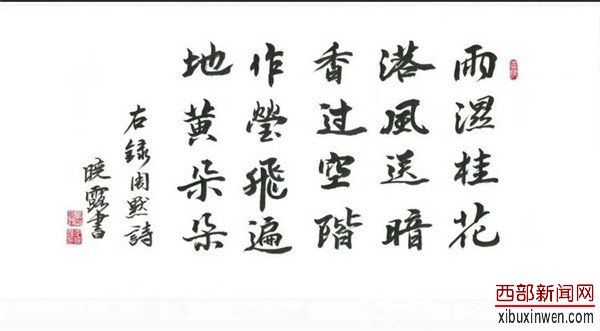 雨濕桂花
落風送暗
香过空階
作螢飛遍
地黄朵朵
右録周默詩
曉露書
西部新闻网
xibuxinwen.com